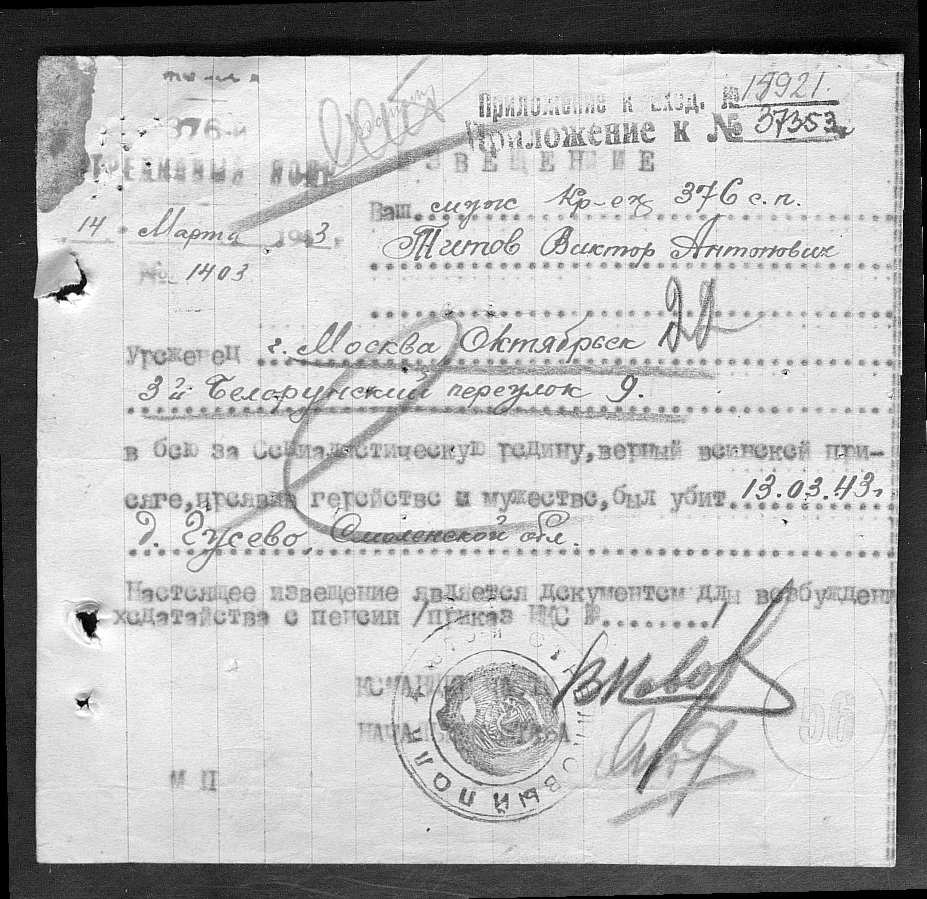 Приложение к вход. № 15921.
Приложение к № 37353
376-й
Стрелковый полк
ИЗВЕЩЕНИЕ
14 Марта 1943 г.
№ 1403
Ваш муж кр-ец 376 с.п.
Титов Виктор Антонович
Уроженец г. Москва, Октябрьск
3й Белорунский переулок 9.
в бою за Социалистическую родину, верный воинской при-
сяге, проявив геройство и мужество, был убит 13.03.43г
д. Гусево, Смоленской обл.
Настоящее извещение является документом для возбуждени
ходатайства о пенсии /приказ НКО №......../
КОМАНДИР
НАЧАЛЬНИК ШТАБА
М П
СТРЕЛКОВЫЙ ПОЛК
56